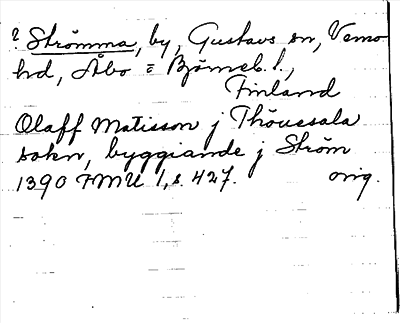 ? Strömma, by, Gustavs sn, Vemo
hd, Åbo = Björneb. l.,
Finland
Olaff Matisson j Thöuesala
sokn, byggiande j Ström
1390 FMU 1, s. 427. orig.